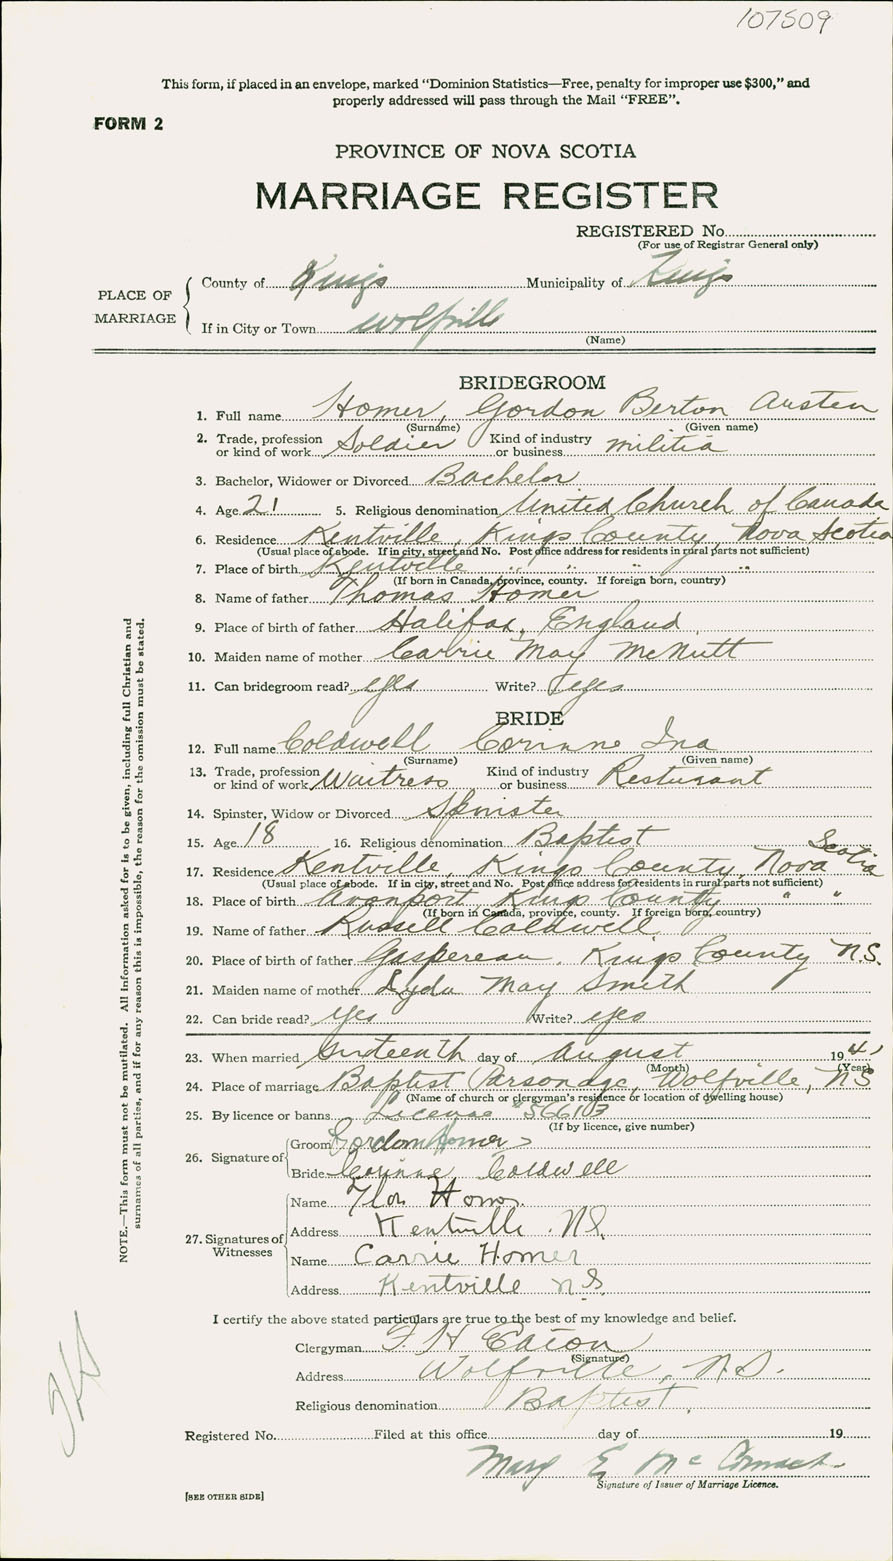 107509
This form, if placed in an envelope, marked "Dominion Statistics—Free, penalty for improper use $300," and
properly addressed will pass through the Mail "FREE".
FORM 2
PROVINCE OF NOVA SCOTIA
MARRIAGE REGISTER
REGISTERED No.
(For use of Registrar General only)
PLACE OF MARRIAGE
County of Kings Municipality of Kings
If in City or Town Wolfville
(Name)
BRIDEGROOM
1. Full name Homer, Gordon Berton Austen
(Surname) (Given name)
2. Trade, profession or kind of work Soldier Kind of industry or business militia
3. Bachelor, Widower or Divorced Bachelor
4. Age 21 5. Religious denomination United Church of Canada
6. Residence Kentville, Kings County, Nova Scotia
(Usual place of abode. If in city, street and No. Post office address for residents in rural parts not sufficient)
7. Place of birth Kentville " " "
(If born in Canada, province, county. If foreign born, country)
8. Name of father Thomas Homer
9. Place of birth of father Halifax, England
10. Maiden name of mother Carrie May McNutt
11. Can bridegroom read? yes Write? yes
BRIDE
12. Full name Coldwell Corinne Ina
(Surname) (Given name)
13. Trade, profession or kind of work Waitress Kind of industry or business Resturant
14. Spinster, Widow or Divorced Spinster
15. Age 18 16. Religious denomination Baptist
17. Residence Kentville, Kings County, Nova Scotia
(Usual place of abode. If in city, street and No. Post office address for residents in rural parts not sufficient)
18. Place of birth Avonport, Kings County " "
(If born in Canada, province, county. If foreign born, country)
19. Name of father Russell Coldwell
20. Place of birth of father Gaspereau, Kings County N.S.
21. Maiden name of mother Lyda May Smith
22. Can bride read? yes Write? yes
23. When married Sixteenth day of August 1941
(Month) (Year)
24. Place of marriage Baptist Parsonage, Wolfville, NS
(Name of church or clergyman's residence or location of dwelling house)
25. By licence or banns License
(If by licence, give number)
26. Signature of
Groom Gordon Homer
Bride Corinne Coldwell
27. Signatures of Witnesses
Name
Address Kentville, NS.
Name Carrie Homer
Address Kentville N.S.
I certify the above stated particulars are true to the best of my knowledge and belief.
Clergyman F. H. Eaton
(Signature)
Address Wolfville, N.S.
Religious denomination Baptist
Registered No. Filed at this office day of 19
Mary E. McCormack
Signature of Issuer of Marriage Licence.
[SEE OTHER SIDE]
NOTE.—This form must not be mutilated. All information asked for is to be given, including full Christian and
surnames of all parties, and if for any reason this is impossible, the reason for the omission must be stated.